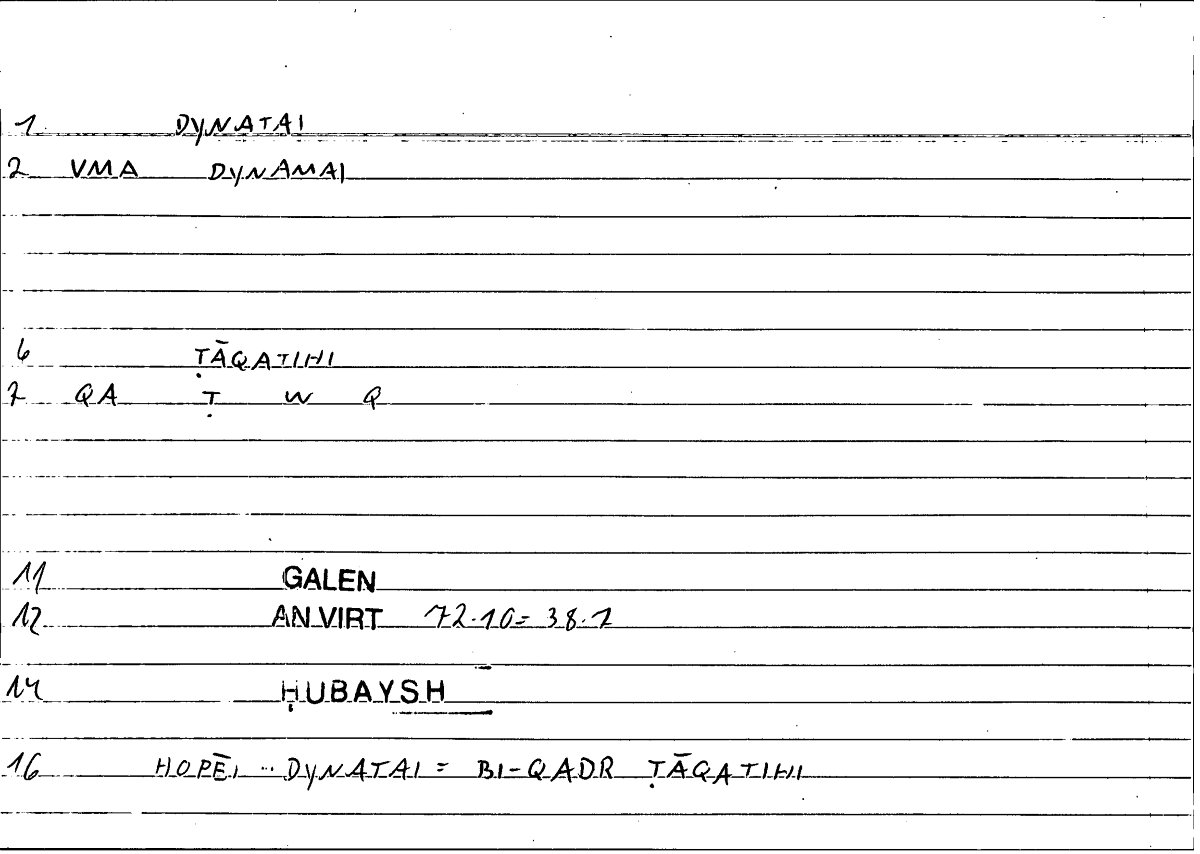 1 DYNATAI
2 VMA DYNAMAI
6 ṬĀQATIHI
7 QA Ṭ W Q
11 GALEN
12 AN VIRT 72.10= 38.7
14 ḤUBAYSH
16 HOPĒI .. DYNATAI = BI-QADR ṬĀQATIHI